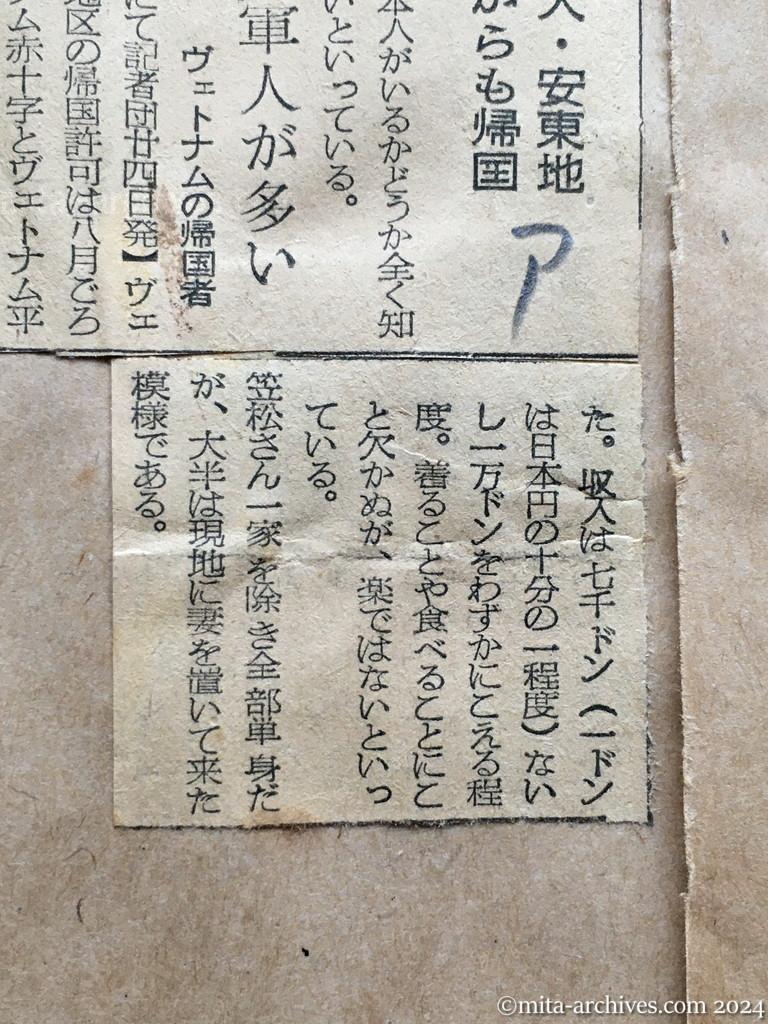 人・安東地
からも帰国
ア
本人がいるかどうか全く知
いといっている。
軍人が多い
ヴェトナムの帰国者
にて記者団廿四日発】ヴェ
地区の帰国許可は八月ごろ
ナム赤十字とヴェトナム平
た。収入は七千ドン（一ドン
は日本円の十分の一程度）ない
し一万ドンをわずかにこえる程
度。着ることや食べることにこ
と欠かぬが、楽ではないといっ
ている。
笠松さん一家を除き全部単身だ
が、大半は現地に妻を置いて来た
模様である。
©mita-archives.com 2024